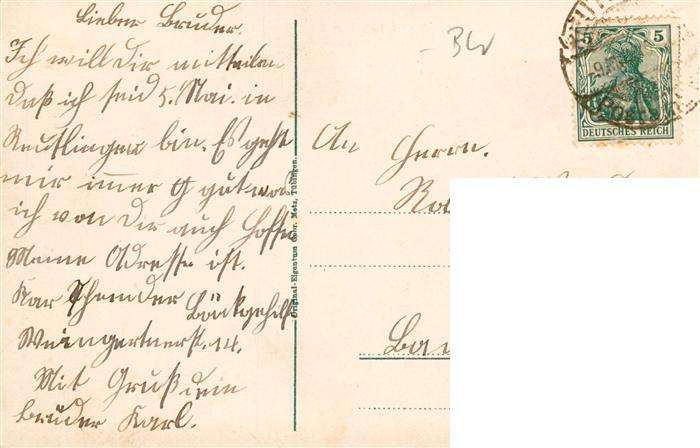 Lieber Bruder.
Ich will dir mitteilen
daß ich seid 5. Mai. in
Reutlingen bin. Es geht
mir imer gut was
ich von dir auch hoffe
Meine Adresse ist.
Kar Bäckgehilf
Weingartnerst. 14.
Mit Gruß dein
Bruder Karl.
Original-Eigentum Gebr. Metz, Tübingen.
BW
5 5
DEUTSCHES REICH
An Herrn.